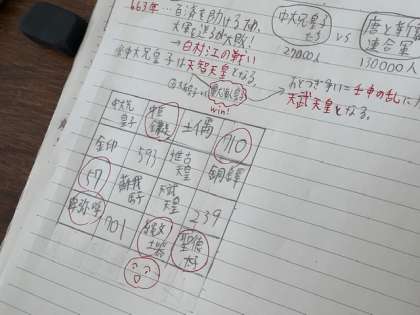 663年…百済を助けるため、
大軍を送るが大敗!
→白村江の戦い
中大兄皇子は天智天皇となる。
中大兄皇子
たち
27000人
VS
唐と新羅
連合軍
130000人
win!
おとつぎ争い=壬申の乱に
天武天皇となる。
中大兄
皇子
中臣
鎌足
土偶
710
金印
593
推古
天皇
銅鐸
57
蘇我
馬子
天武
天皇
239
卑弥呼
701
縄文
土器
聖徳
太子